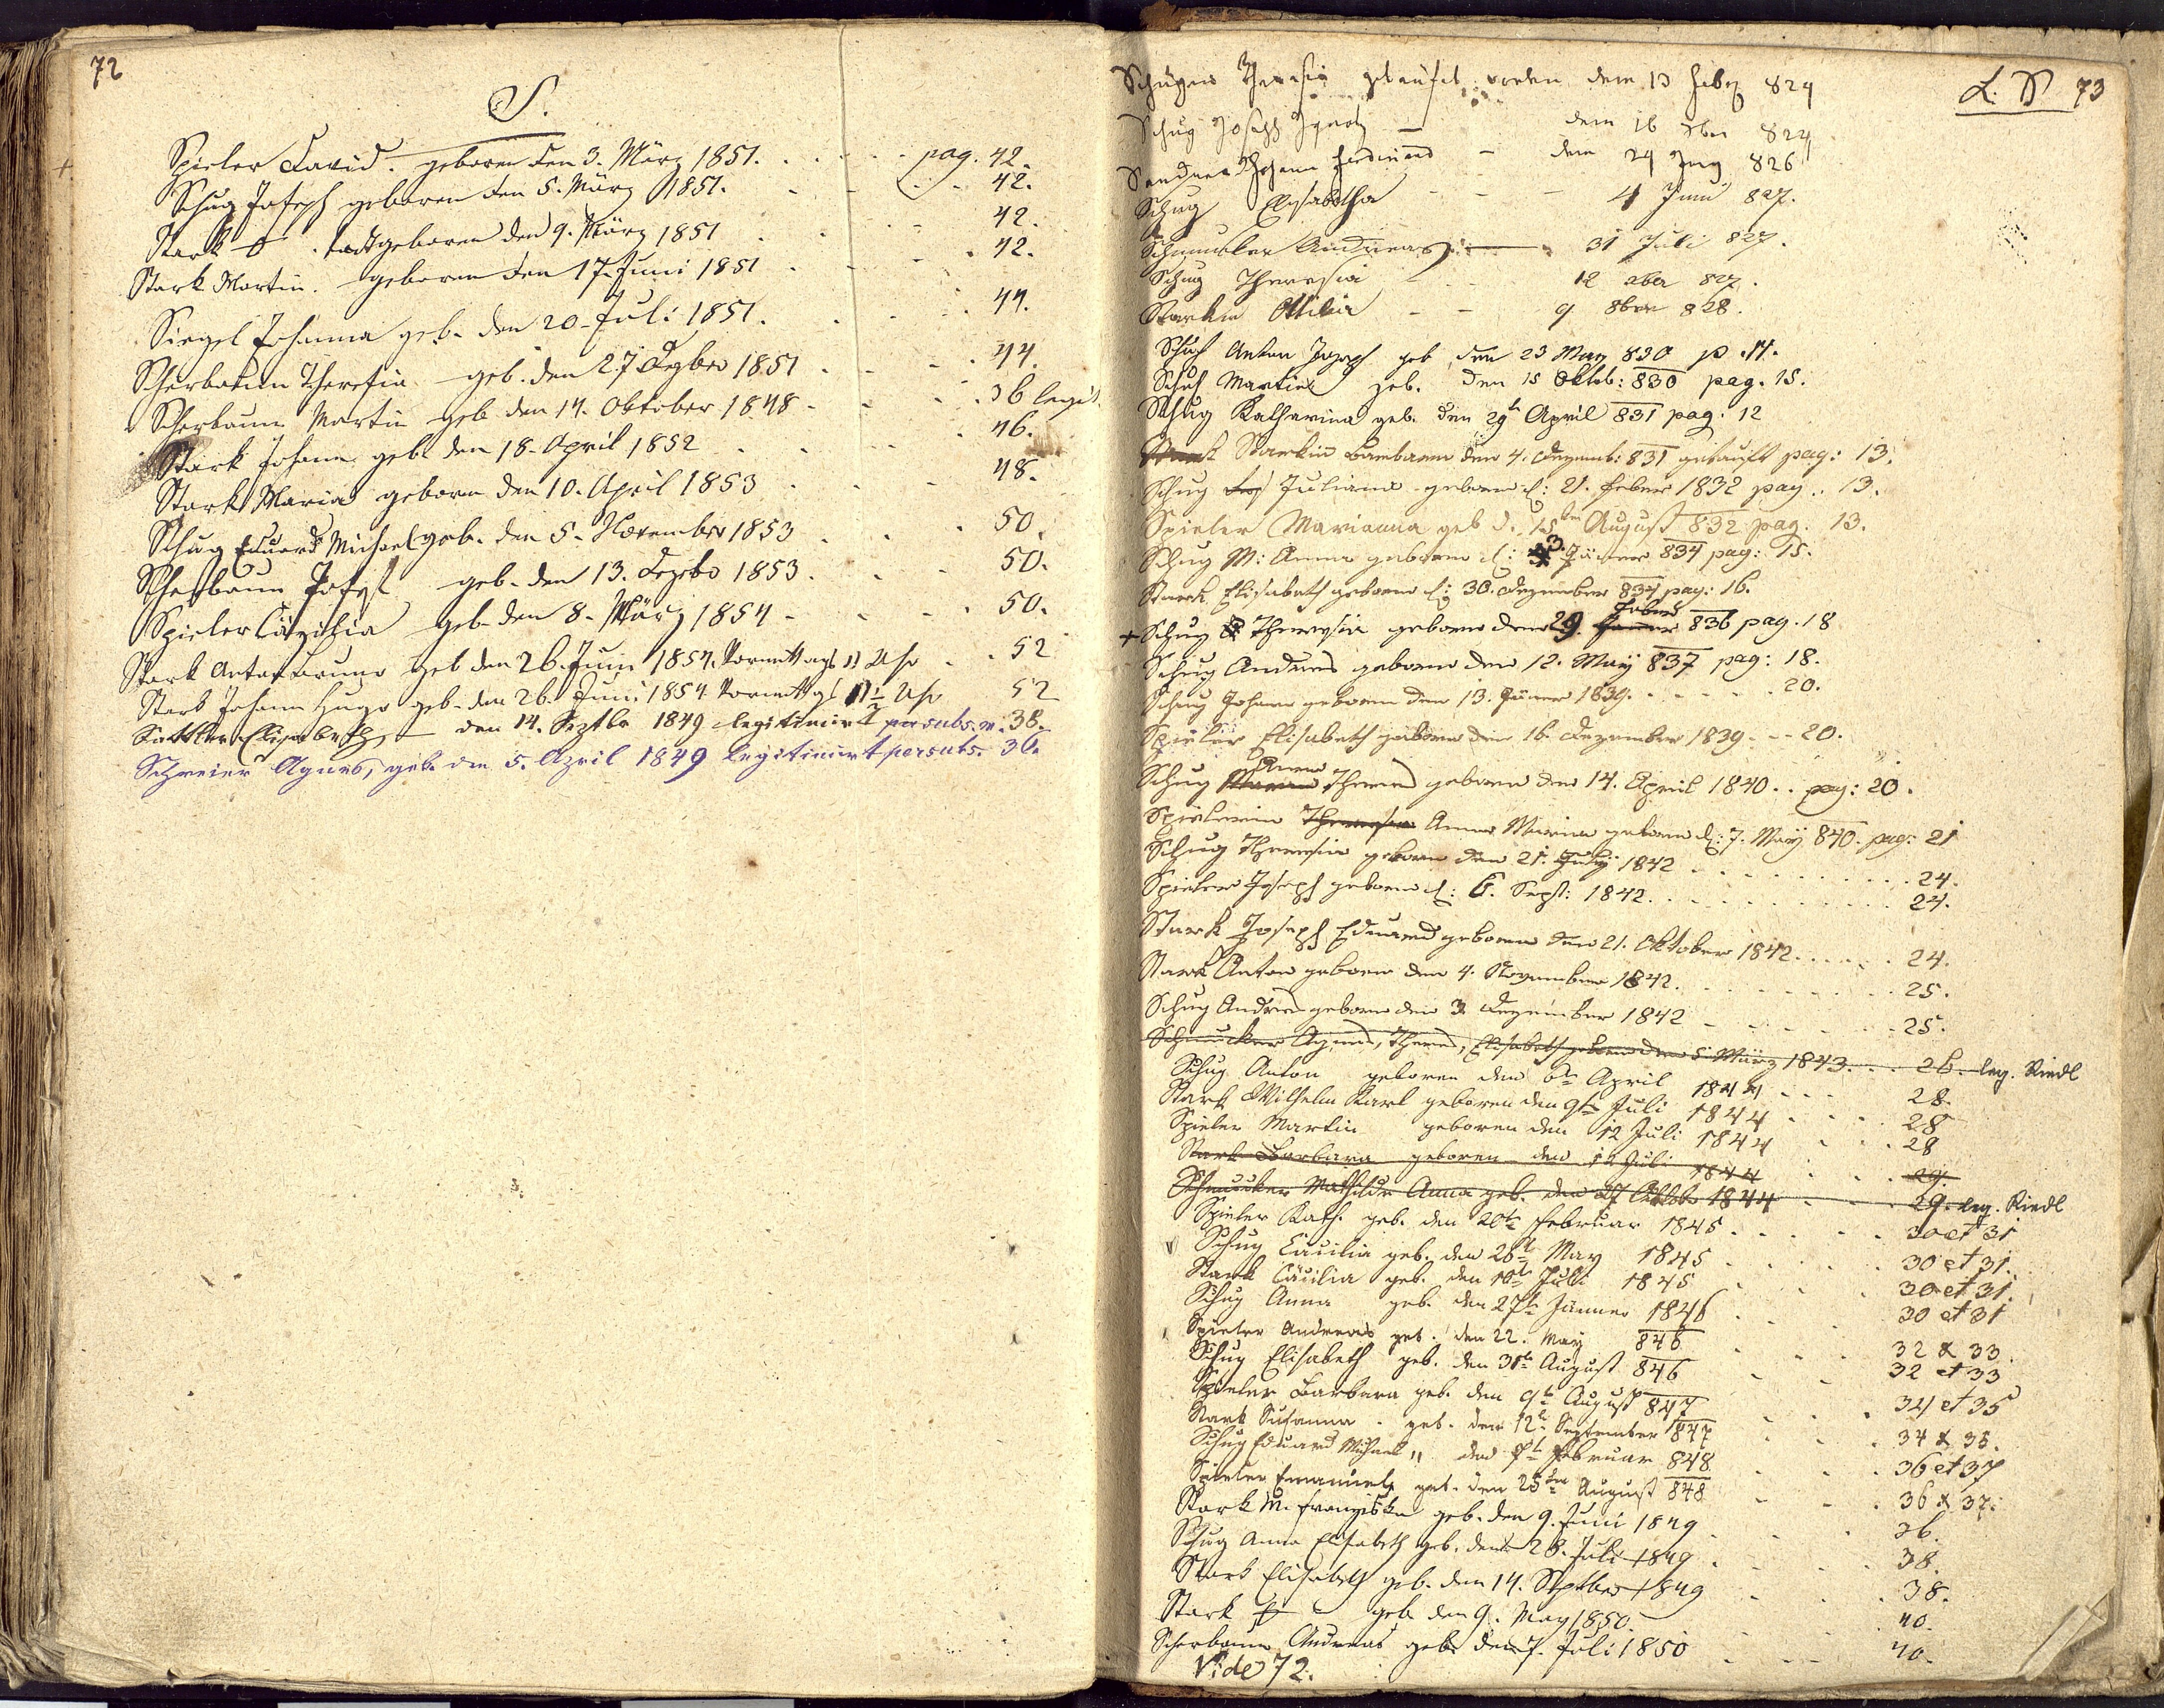 72
S.
Spieler David. geboren den 3. März 1851. pag. 42.
Schug Joseph geboren den 5. März 1851. 42.
Stark todtgeboren den 9. März 1851 42.
Stark Martin. geboren den 17. Juni 1851 42.
Siegel Johanna geb. den 20. Juli 1851. 44.
Scherbaum Theresia geb. den 27 Dezbr 1851 44.
Scherbaum Martin geb den 14. Oktober 1848 36 legit.
Stark Johann geb. den 18. April 1852 46.
Stark Maria geboren den 10. April 1853 48.
Schug Eduard Michael geb. den 5. November 1853 50.
Scherbaum Josef geb. den 13. Dezbr 1853. 50.
Spieler Cäzilia geb. den 8. März 1854 50.
Stark Anton Bruno geb den 26. Juni 1854. Vormittags 11 Uhr 52
Stark Johann Hugo geb. den 26. Juni 1854 Vormittags 11½ Uhr 52
Sattler Elisabeth, den 14. Septbr 1849 legitimirt per subs. m. 38.
Schreier Agnes, geb. den 5. April 1849 legitimirt per subs. 36.
L. S 73
Theresia getauft worden den 13 824
Schug Joseph Ignatz den 16 824
Johann Ferdinand den 24 826
Schug Elisabetha 4 Juni 827.
Schmucker Andreas 31 Juli 827.
Schug Theresia 12 827.
Starkin Ottilia 9 8ber 828.
Schuh Anton Joseph geb. den 23 May 830 p. 14.
Schuh Martin geb. den 15 Oktob: 830 pag. 15.
Schug Katharina geb. den 29t April 831 pag: 12
Starkin Barbara den 4. Dezemb: 831 getauft pag: 13.
Schug Juliana geboren d: 21. Feber 1832 pag.: 13.
Spieler Marianna geb d. 15ten August 832 pag. 13.
Schug M: Anna geboren d: 3. Jäner 834 pag: 15.
Stark Elisabeth geboren d: 30. Dezember 834 pag: 16.
+ Schug Theresia geboren den 29. Feber 836 pag. 18
Schug Andreas geboren den 12. May 837 pag: 18.
Schug Johann geboren den 13. Jäner 1839. 20.
Spieler Elisabeth geboren den 16. Dezember 1839 - - 20.
Schug Anna Theres geboren den 14. April 1840. . pag: 20.
Spielerin Theresia Anna Maria geboren d: 7. May 840. pag: 21
Schug Theresia geboren den 21. July 1842 24.
Spieler Joseph geboren d: 6. Sept: 1842. 24.
Stark Joseph Eduard geboren den 21. Oktober 1842. 24.
Stark Anton geboren den 4. November 1842. 25.
Schug Andreas geboren den 3. Dezember 1842 25.
Schmucker Agnes, Theres, Elisabeth geboren den 5 März 1843. 26. leg. Riedl
Schug Anton geboren den 6t April 1844 28.
Stark Wilhelm Karl geboren den 9t Juli 1844 28
Spieler Martin geboren den 12 Juli 1844 28
Stark Barbara geboren den 12 Juli 1844 29.
Schmucker Mathilde Anna geb. den 27 Oktobr 1844 29. leg. Riedl
Spieler Kath. geb. den 20te Februar 1845. 30 et 31
Schug Cäcilia geb. den 26t May 1845 30 et 31.
Stark Cäcilia geb. den 10t Juli 1845 30 et 31.
Schug Anna geb. den 27t Jänner 1846 30 et 31
Spieler Andreas geb. den 22. May 846 32 & 33.
Schug Elisabeth geb. den 31t August 846 32 et 33
Spieler Barbara geb. den 9t August 847 34 et 35
Stark Susanna. geb. den 12t September 847 34 & 35.
Schug Eduard Michael " den Februar 848 36 et 37
Spieler Emanuel geb. den 25ten August 848 36 & 37.
Stark M. Franziska geb. den 9. Juni 1849 36.
Schug Anna Elisabeth geb. den 28. Juli 1849 38.
Stark Elisabeth geb. den 14. Septber 1849 38.
Stark geb. den 9. May 1850. 40.
Scherbaum Andreas geb. den 7. Juli 1850 40.
Vide 72.